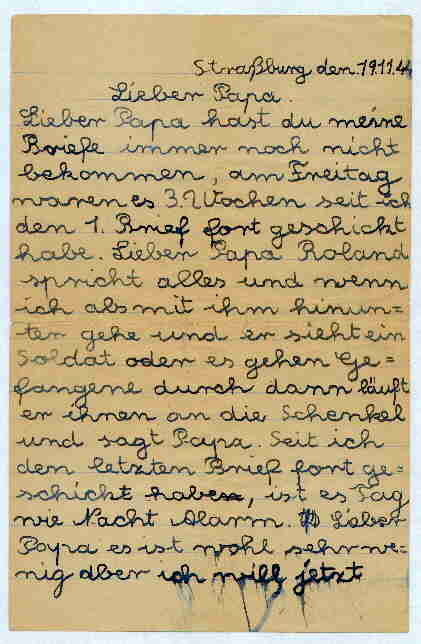 Straßburg den 19.11.44
Lieber Papa.
Lieber Papa hast du meine
Briefe immer noch nicht
bekommen, am Freitag
waren es 3. Wochen seit ich
den 1. Brief fort geschickt
habe. Lieber Papa Roland
spricht alles und wenn
ich als mit ihm hinun=
ter gehe und er sieht ein
Soldat oder es gehen Ge=
fangene durch dann läuft
er ihnen an die Schenkel
und sagt Papa. Seit ich
den letzten Brief fort ge=
schickt habe, ist es Tag
wie Nacht Alarm. Lieber
Papa es ist wohl sehr we=
nig aber ich will jetzt